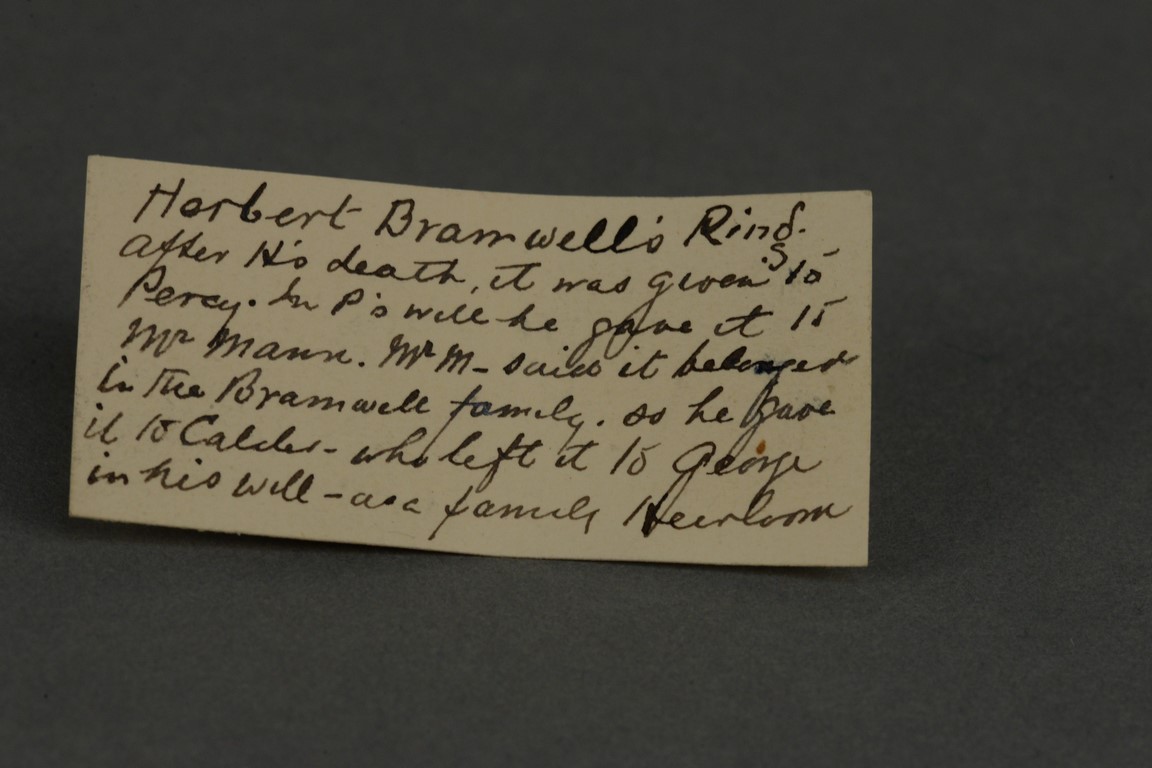 Herbert Bramwell's Ring.
After H's death, it was given to
Percy. In P's will he gave it to
Mr Mann. Mr M - said it belonged
in the Bramwell family. so he gave
it to Calder - who left it to George
in his will - as a family Heirloom